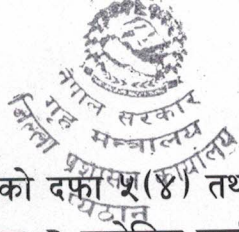 नेपाल सरकार
गृह मन्त्रालय
जिल्ला प्रशासन कार्यालय
प्यूठान
को दफा ५(४) तथ